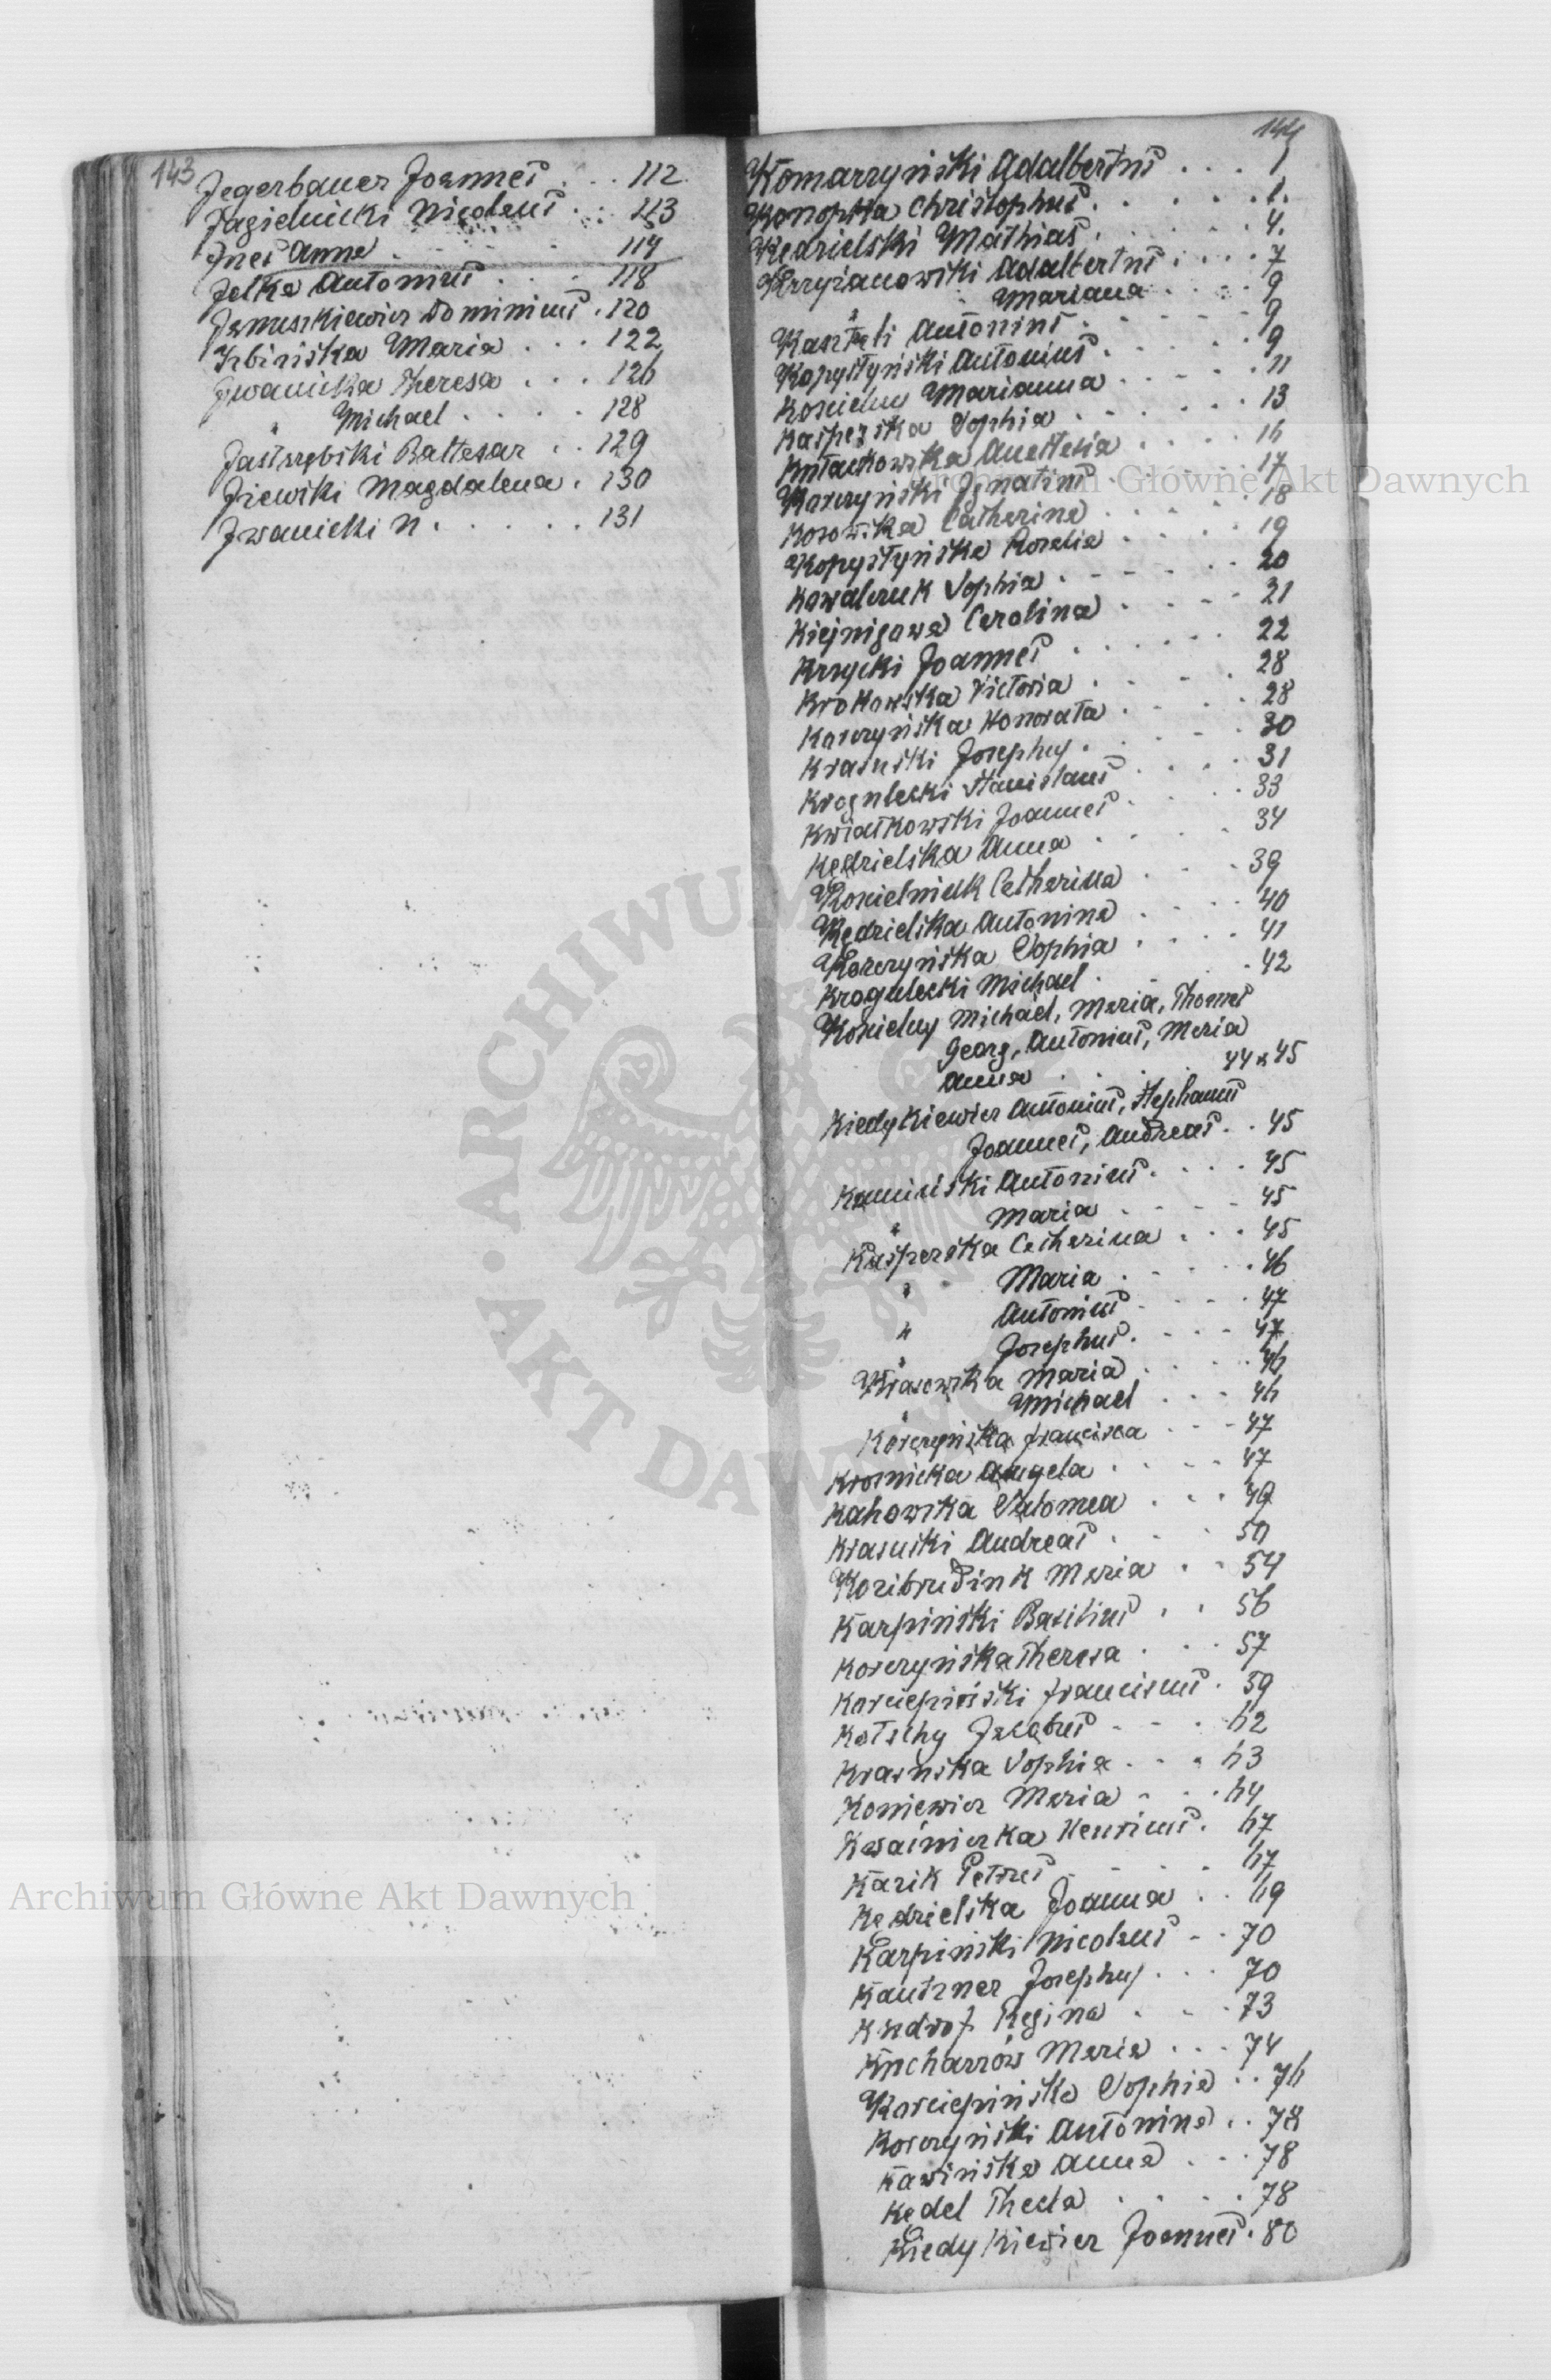 143
Jegerbauer Joannes . . . 112
Jagielnicki Nicolaus . . . 113
Ines Anna . . . . 114
Jelka Antonius . . . 118
Januszkiewicz Dominicus . 120
Izbińska Maria . . . 122
Iwanicka Theresa . . . 126
" Michael . . . . 128
Jastrzębski Baltasar . . 129
Jiewski Magdalena . 130
Iwanicki N . . . . . 131
144
Komarzyński Adalbertus . . . 1
Konopka Christophus . . . . . 1.
Kedzielski Mathias . . . . . 4.
Krzyżanowski Adalbertus . . . . 7
" Mariana . . . . 9
Kaszteli Antonius . . . . . 9
Kopystyński Antonius . . . . 9
Kosielny Marianna . . . . . 11
Kasperska Sophia . . . . . 13
Kutaikowska Anastasia . . . . 16
Korczyński Ignatius . . . . 17
Kosowska Catharina . . . . 18
Kopystyńska Rosalia . . . . 19
Kowalczuk Sophia . . . . . 20
Kiejnigowa Carolina . . . . 21
Krzycki Joannes . . . . . 22
Krokowska Victoria . . . . 28
Korczyńska Honorata . . . . 28
Krasuski Josephus . . . . 30
Krogulecki Stanislaus . . . . 31
Kwiatkowski Joannes . . . . 33
Kędzielska Anna . . . . 34
Kosielniuk Catharina . . . 39
Kędzielska Antonina . . . . 40
Korczyńska Sophia . . . . 41
Krogulecki Michael . . . . 42
Kosielny Michael, Maria, Thomas
Georg, Antonius, Maria
Anna . . . . 44 & 45
Kiedykiewicz Antonius, Stephanus
Joannes, Andreas . . 45
Kamiński Antonius . . . . 45
" Maria . . . . 45
Kasperska Catharina . . . 45
" Maria . . . . . 46
" Antonius . . . . 47
" Josephus . . . . 47
Krasowska Maria . . . . . 46
" Michael . . . 46
Korczyńska Francisca . . . 47
Krosnicka Angela . . . . 47
Kahowska Salomea . . . 49
Krasuski Andreas . . . 50
Koribrudiuk Maria . . 54
Karpiński Basilius . . 56
Korczyńska Theresa . . . 57
Korciepiński Franciscus . 59
Kotschy Jacobus . . . 62
Krasuska Sophia . . . 63
Koniewicz Maria . . . 64
Kwaśnierka Henricus . 67
Kazik Petrus . . . . 67
Kędzielska Joanna . . 69
Karpiński Nicolaus . . 70
Kautzner Josephus . . . 70
Kudrof Regina . . . 73
Kucharzów Maria . . . 74
Korciepińska Sophia . . 76
Korczyński Antonina . . 78
Kawińska Anna . . . 78
Kędel Thecla . . . . 78
Kiedykiewicz Joannes . 80
Archiwum Główne Akt Dawnych